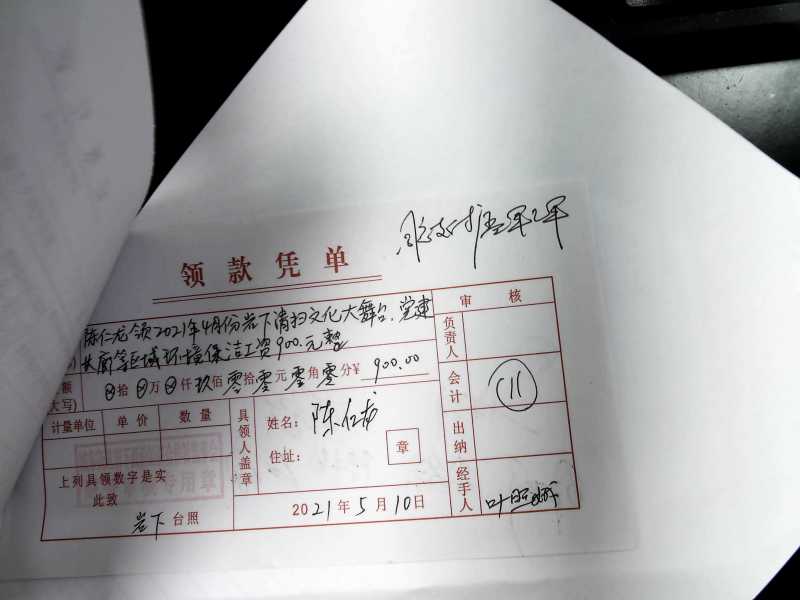 领款凭单
陈仁龙领2021年4月份岩下清扫文化大舞台、党建
长廊等区域环境保洁工资900.元整
额
大写)
拾 万 仟 玖 佰 零 拾 零 元 零 角 零 分 ¥ 900.00
计量单位 单价 数量
上列具领数字是实
此致
岩下 台照
具领人盖章
姓名: 陈仁龙
住址:
章
2021年5月10日
审核
负责人
会计
(11)
出纳
经手人